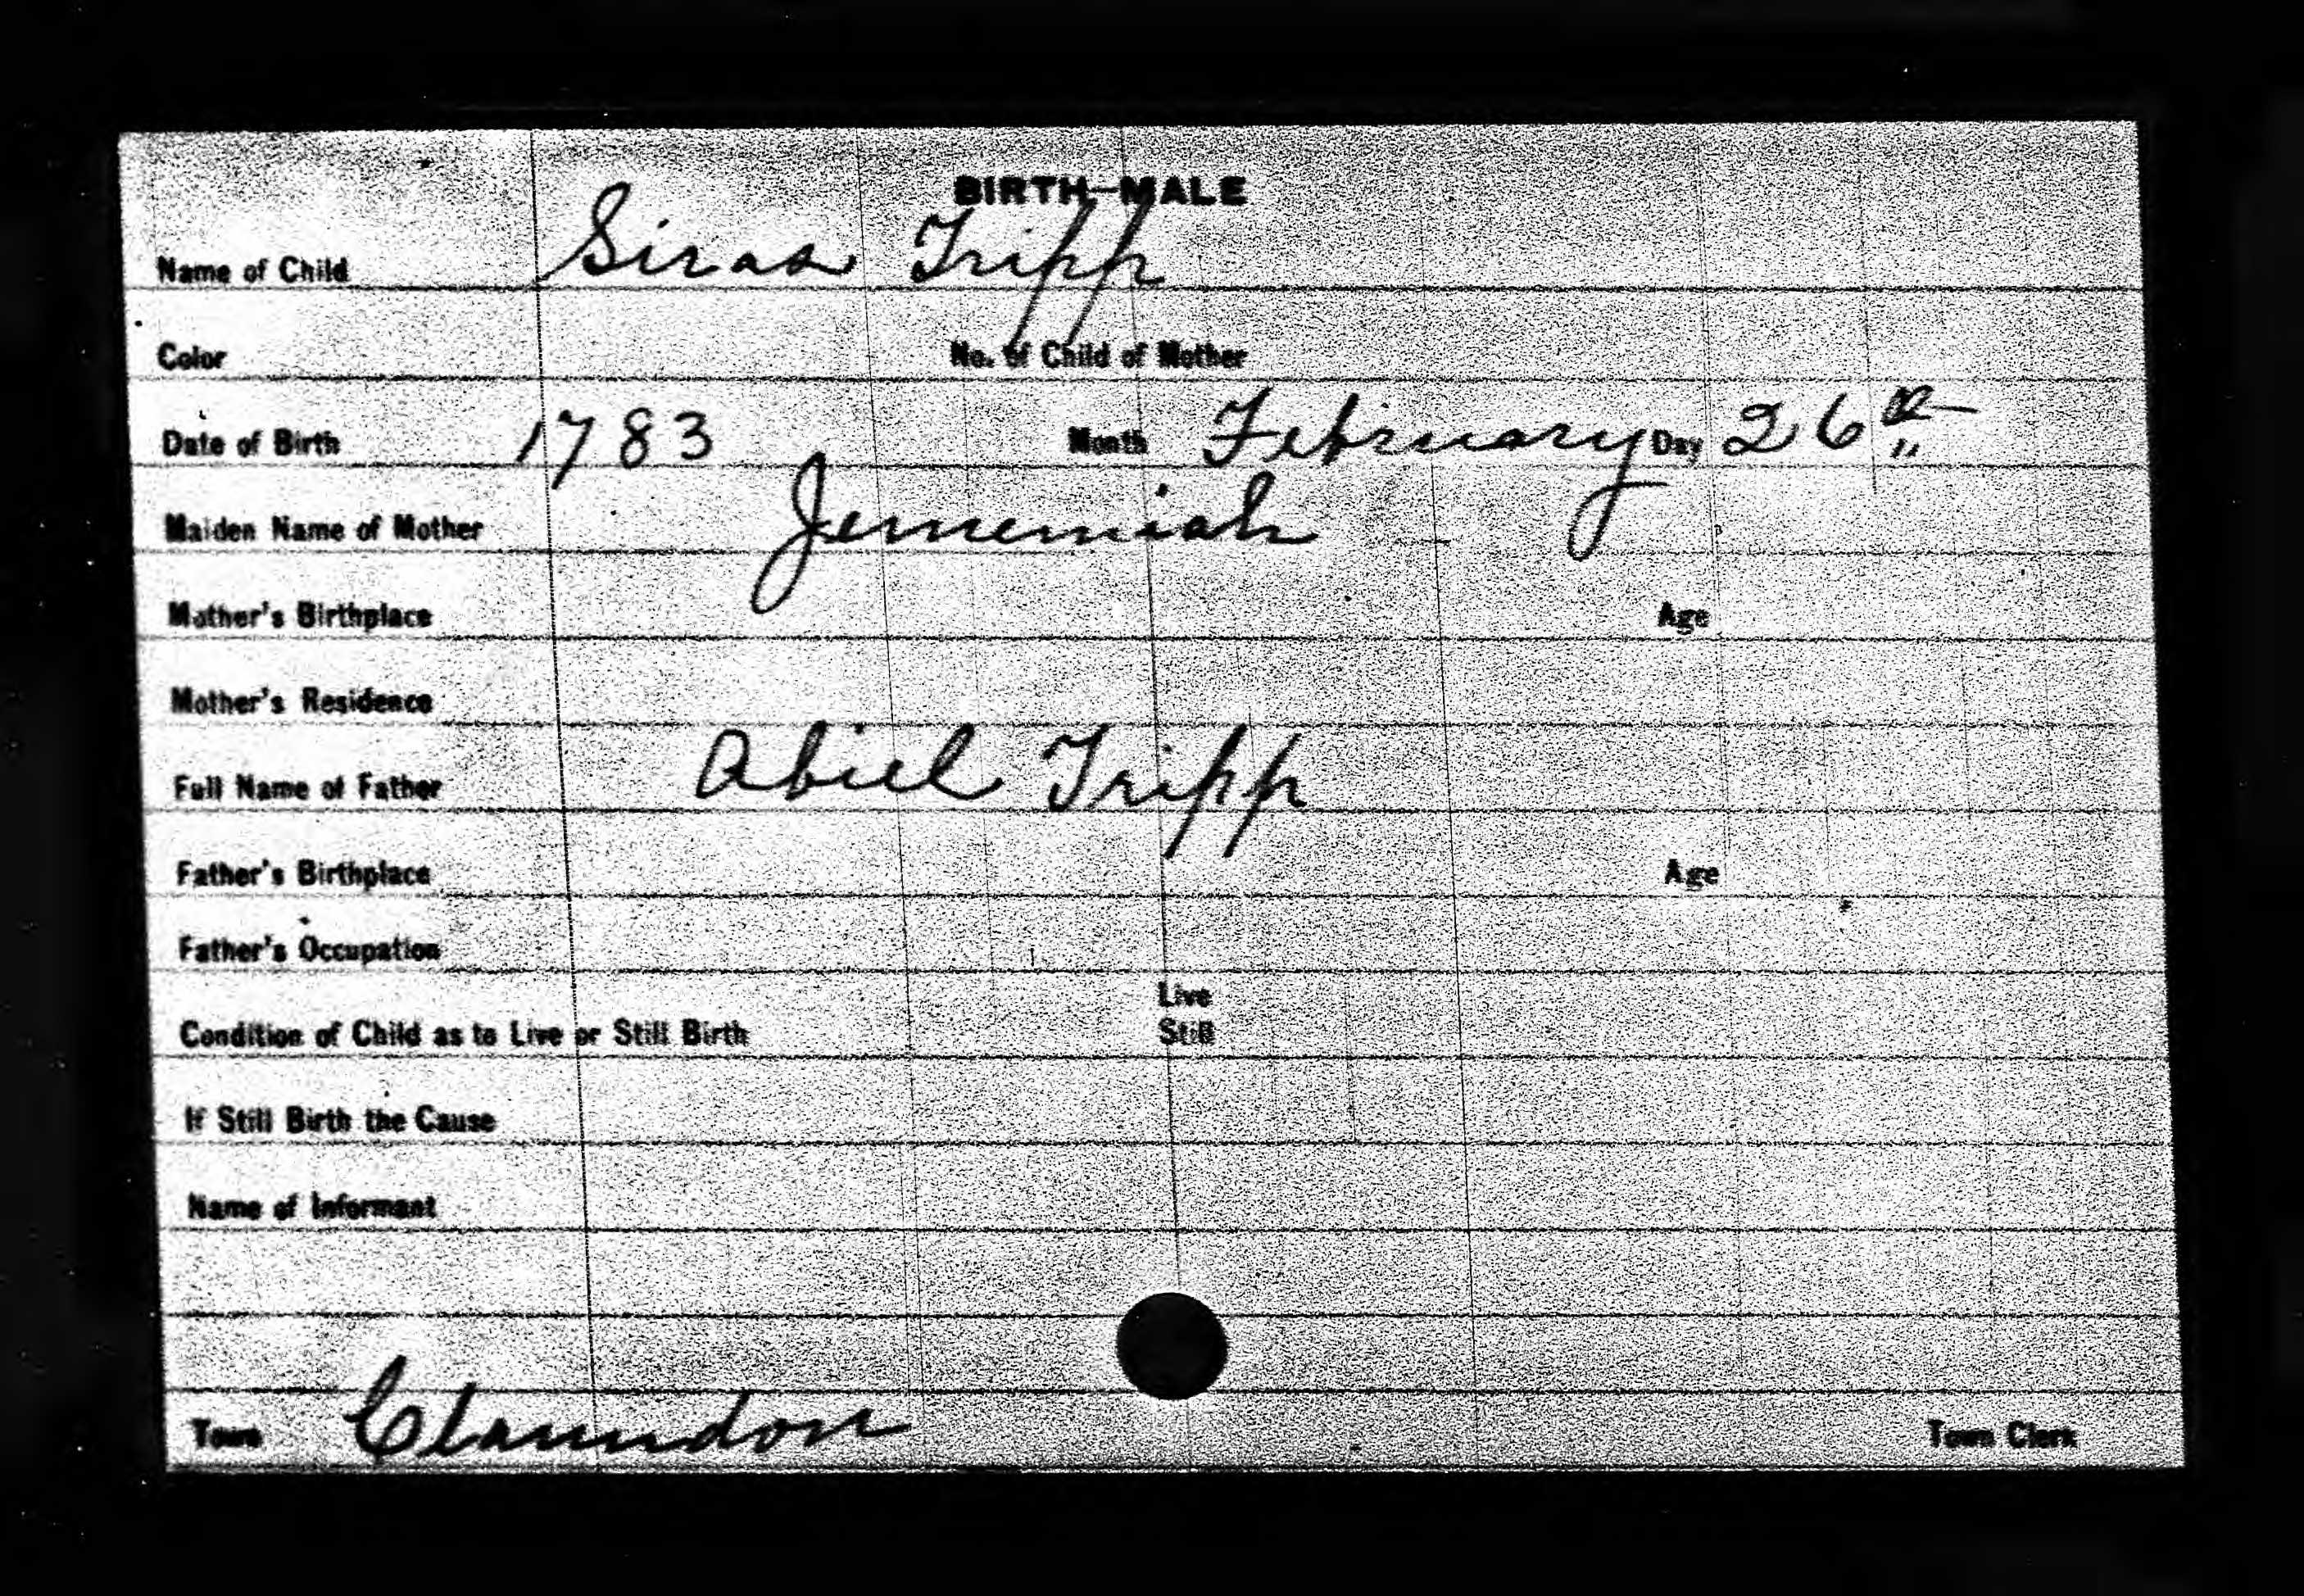 BIRTH—MALE
Name of Child Siras Tripp
Color No. of Child of Mother
Date of Birth 1783 Month February Day 26th
Maiden Name of Mother Jememiah
Mother's Birthplace Age
Mother's Residence
Full Name of Father Abiel Tripp
Father's Birthplace Age
Father's Occupation
Live
Condition of Child as to Live or Still Birth Still
If Still Birth the Cause
Name of Informant
Town Clarendon Town Clerk